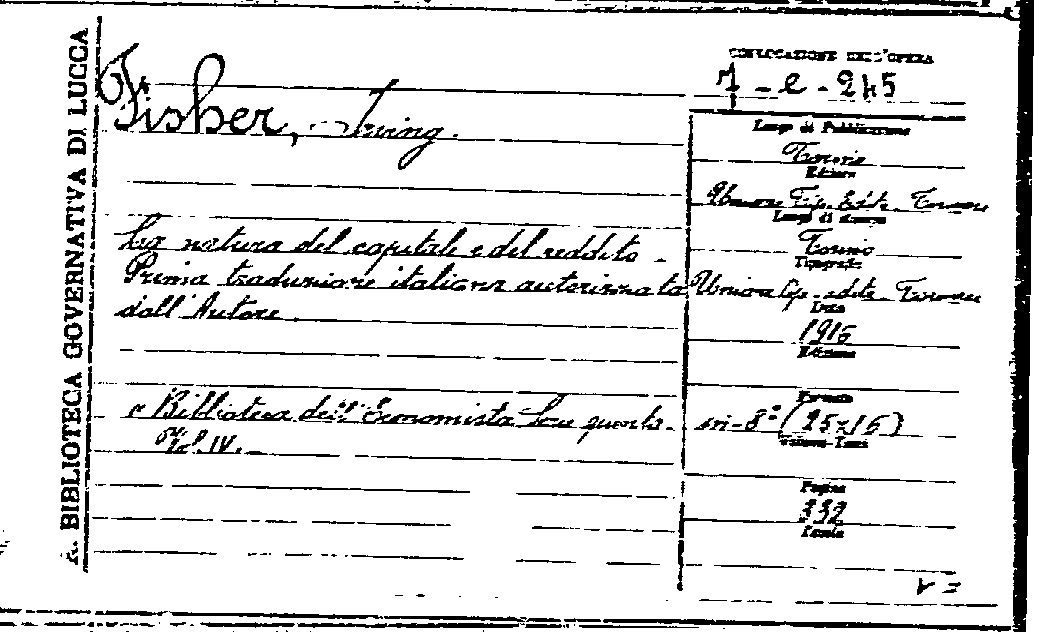 R. BIBLIOTECA GOVERNATIVA DI LUCCA
COLLOCAZIONE DELL'OPERA
7 - e - 245
Fisher, Irving.
La natura del capitale e del reddito.
Prima traduzione italiana autorizzata
dall'Autore.
"Biblioteca dell'Economista Serie quinta.
Vol. IV.
Luogo di Pubblicazione
Torino
Editore
Unione Tip. Edite. Torinese
Luogo di stampa
Torino
Tipografia
Unione Tip. edite. Torinese
Data
1916
Edizione
Formato
in-8° (25x16)
Volume-Tomi
Pagine
332
Tavole